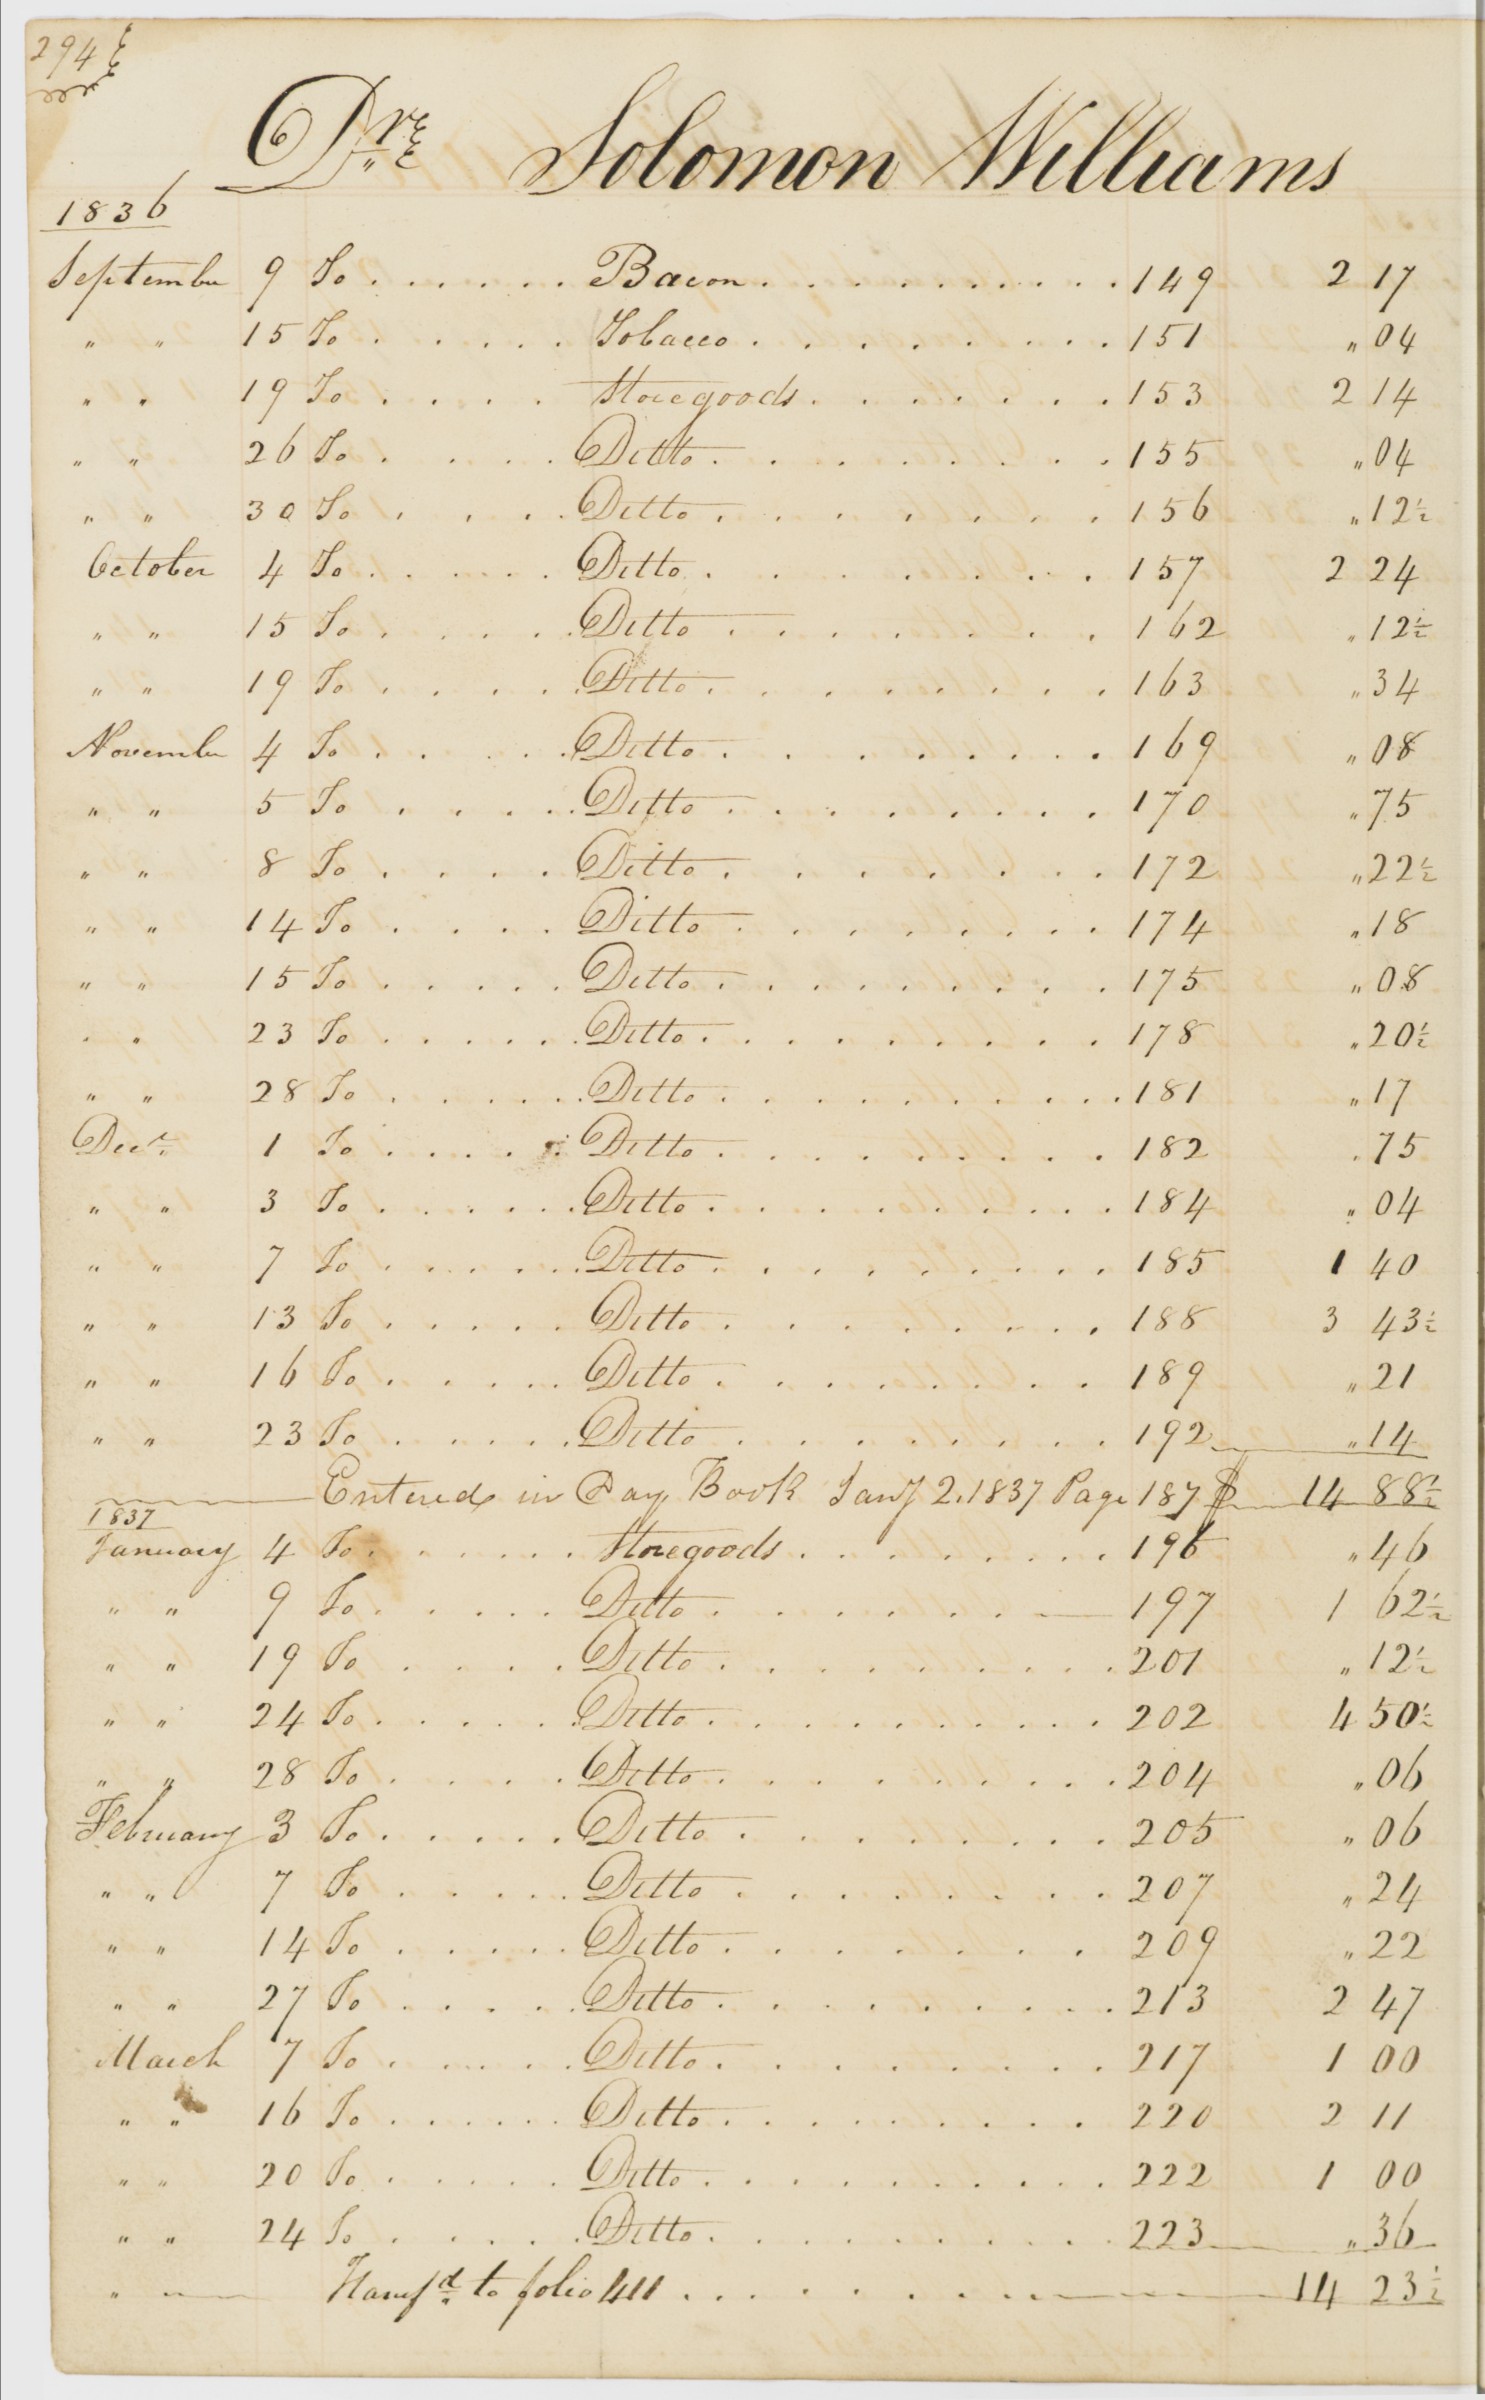 294
Dr Solomon Williams
1836
September 9 To . . . . . . Bacon . . . . . . . . . . 149 2 17
" " 15 To . . . . . Tobacco . . . . . . . . 151 " 04
" " 19 To . . . . Storegoods . . . . . . . 153 2 14
" " 26 To . . . . Ditto . . . . . . . . 155 " 04
" " 30 To . . . . Ditto . . . . . . . . 156 " 12½
October 4 To . . . . . Ditto . . . . . . . . 157 2 24
" " 15 To . . . . . Ditto . . . . . . . . 162 " 12½
" " 19 To . . . . . Ditto . . . . . . . . . 163 " 34
November 4 To . . . . . Ditto . . . . . . . . 169 " 08
" " 5 To . . . . . Ditto . . . . . . . . 170 " 75
" " 8 To . . . . Ditto . . . . . . . . 172 " 22½
" " 14 To . . . . Ditto . . . . . . . . 174 " 18
" " 15 To . . . . . Ditto . . . . . . . . . 175 " 08
" " 23 To . . . . . . Ditto . . . . . . . . . 178 " 20½
" " 28 To . . . . . . Ditto . . . . . . . . . . 181 " 17
Decr. 1 To . . . . . Ditto . . . . . . . . . 182 " 75
" " 3 To . . . . . . Ditto . . . . . . . . . . 184 " 04
" " 7 To . . . . . . Ditto . . . . . . . . . 185 1 40
" " 13 To . . . . . Ditto . . . . . . . . 188 3 43½
" " 16 To . . . . . Ditto . . . . . . . . 189 " 21
" " 23 To . . . . . Ditto . . . . . . . . 192 " 14
Entered in Day Book Jany 2. 1837 Page 187 $ 14 88½
1837
January 4 To . . . . . . Storegoods . . . . . . . . . 196 " 46
" " 9 To . . . . . Ditto . . . . . . . 197 1 62½
" " 19 To . . . . Ditto . . . . . . . . . 201 " 12½
" " 24 To . . . . . . Ditto . . . . . . . . . . 202 4 50½
" " 28 To . . . . Ditto . . . . . . . . . 204 " 06
February 3 To . . . . . Ditto . . . . . . . . 205 " 06
" " 7 To . . . . . Ditto . . . . . . . . 207 " 24
" " 14 To . . . . . Ditto . . . . . . . 209 " 22
" " 27 To . . . . . Ditto . . . . . . . . . 213 2 47
March 7 To . . . . . Ditto . . . . . . . . . 217 1 00
" " 16 To . . . . . . Ditto . . . . . . . . . 220 2 11
" " 20 To . . . . . Ditto . . . . . . . . . . 222 1 00
" " 24 To . . . . . Ditto . . . . . . . . . . 223 " 36
" Transfd to folio 411 . . . . . . . . . 14 23½